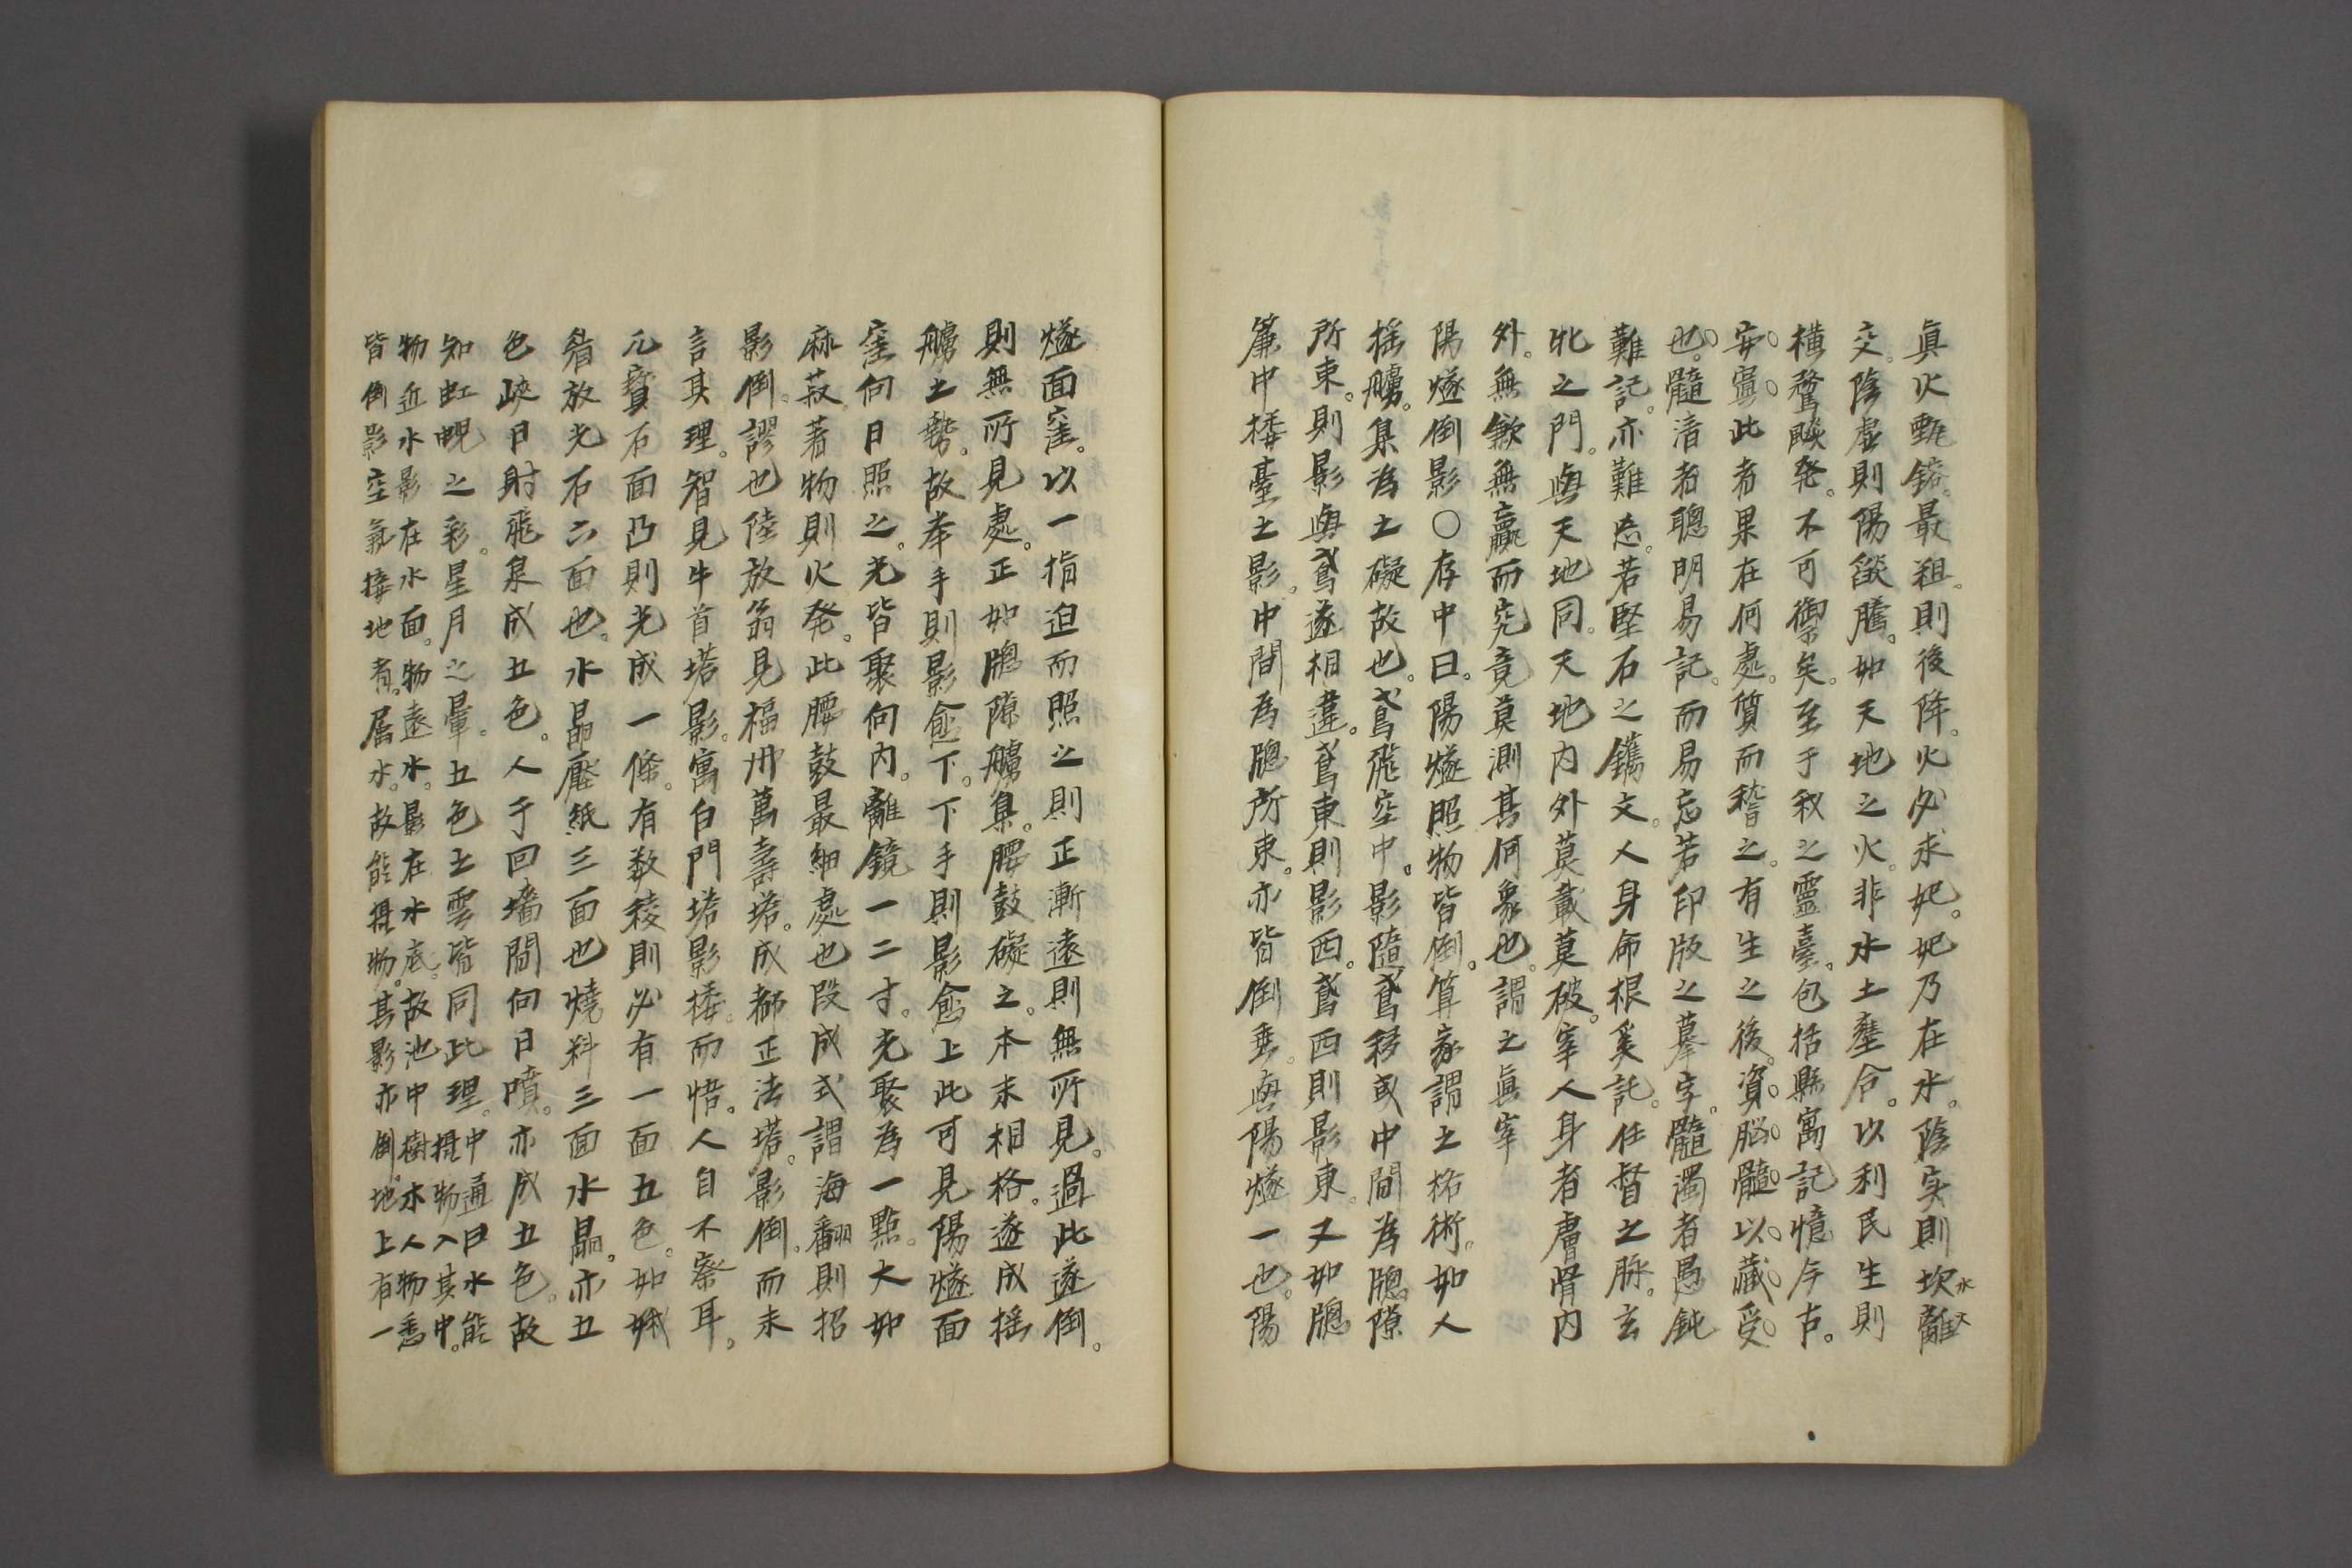 眞火甄鎔最粗則後降火必求妃妃乃在水陰实則坎水離火
交陰虛則陽燄騰如天地之火非水土壅合以利民生則
横騖燄発不可禦矣至于秋之靈臺包括縣寓記憶今古
安寧此者果在何處質而稽之有生之後資脳髓以藏受
也髓清者聰明易記而易忘若印版之摹字髓濁者愚鈍
難記亦難忘若堅石之鐫文人身命根奚託任督之脉玄
牝之門與天地同天地内外莫載莫破宰人身者膚腎内
外無歉無贏而究竟莫測其何象也謂之眞宰
陽燧倒影○存中曰陽燧照物皆倒算家謂之格術如人
摇艣臬為之礙故也鳶飛空中影隨鳶移或中間為牎隙
所束則影與鳶遂相違鳶東則影西鳶西則影東又如牎
簾中楼臺之影中間為牎所束亦皆倒垂與陽燧一也陽
燧面窪以一指迫而照之則正漸遠則無所見過此遂倒
則無所見處正如牎隙艣臬腰鼓礙之本末相格遂成摇
艣之勢故举手則影愈下下手則影愈上此可見陽燧面
窪向日照之光皆聚向内離鏡一二寸光聚為一點大如
麻菽著物則火発此腰鼓最細處也段成式謂海翻則招
影倒謬也陸放翁見福州萬壽塔成都正法塔影倒而未
言其理智見牛首塔影寓白門塔影楼而悟人自不察耳
凡寳石面凸則光成一條有数稜則必有一面五色如峨
眉放光石六面也水晶壓紙三面也燒料三面水晶亦五
色峽日射飛泉成五色人于回墻間向日噴亦成五色故
知虹蜺之彩星月之暈五色之雲皆同此理中通曰水能摄物入其中
物近水影在水面物遠水影在水底故池中樹木人物悉
皆倒影空氣接地者属水故能摄物其影亦倒地上有一